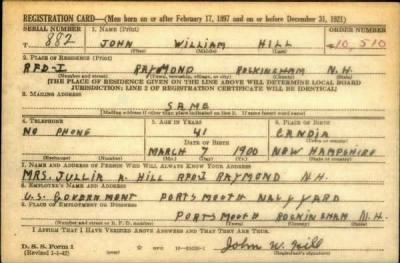 REGISTRATION CARD—(Men born on or after February 17, 1897 and on or before December 31, 1921)
SERIAL NUMBER 1. NAME (Print) ORDER NUMBER
T 882 JOHN WILLIAM HILL 10,510
(First) (Middle) (Last)
2. PLACE OF RESIDENCE (Print)
RFD-I RAYMOND ROCKINGHAM N.H.
(Number and street) (Town, township, village, or city) (County) (State)
[THE PLACE OF RESIDENCE GIVEN ON THE LINE ABOVE WILL DETERMINE LOCAL BOARD
JURISDICTION; LINE 2 OF REGISTRATION CERTIFICATE WILL BE IDENTICAL]
3. MAILING ADDRESS
SAME
[Mailing address if other than place indicated on line 2. If same insert word same]
4. TELEPHONE 5. AGE IN YEARS 6. PLACE OF BIRTH
NO PHONE 41 CANDIA
DATE OF BIRTH (Town or county)
MARCH 7 1900 NEW HAMPSHIRE
(Exchange) (Number) (Mo.) (Day) (Yr.) (State or country)
7. NAME AND ADDRESS OF PERSON WHO WILL ALWAYS KNOW YOUR ADDRESS
MRS. JULLIA A. HILL RFD-I RAYMOND N.H.
8. EMPLOYER'S NAME AND ADDRESS
U.S. GOVERNMENT PORTSMOUTH NAVY YARD
9. PLACE OF EMPLOYMENT OR BUSINESS
PORTSMOUTH ROCKINGHAM N.H.
(Number and street or R. F. D. number) (Town) (County) (State)
I AFFIRM THAT I HAVE VERIFIED ABOVE ANSWERS AND THAT THEY ARE TRUE.
D. S. S. Form 1
(Revised 1-1-42) John W. Hill